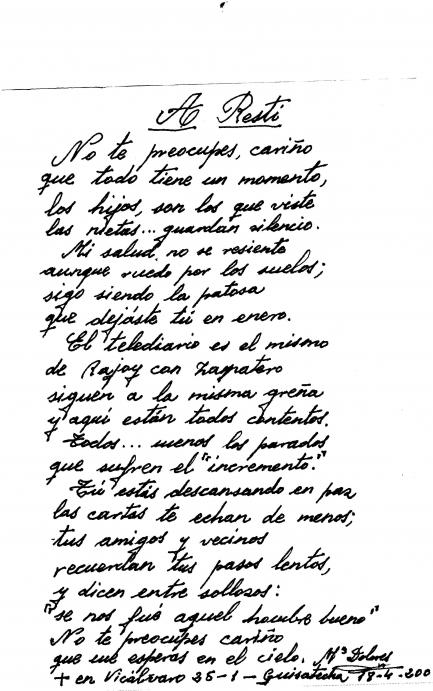 A Resti
No te preocupes, cariño
que todo tiene un momento,
los hijos, son los que viste
las nietas... guardan silencio.
Mi salud, no se resiente
aunque ruedo por los suelos;
sigo siendo la patosa
que dejáste tú en enero.
El telediario es el mismo
de Rajoy con Zapatero
siguen a la misma greña
y aquí están todos contentos.
Todos... menos los parados
que sufren el "incremento."
Tú estás descansando en paz
las cartas te echan de menos;
tus amigos y vecinos
recuerdan tus pasos lentos,
y dicen entre sollosos:
"se nos fué aquel hombre bueno"
No te preocupes cariño
que me esperas en el cielo. Mª Dolores
+ en Vicálvaro 25-1 - Guisatecha 18-4-200